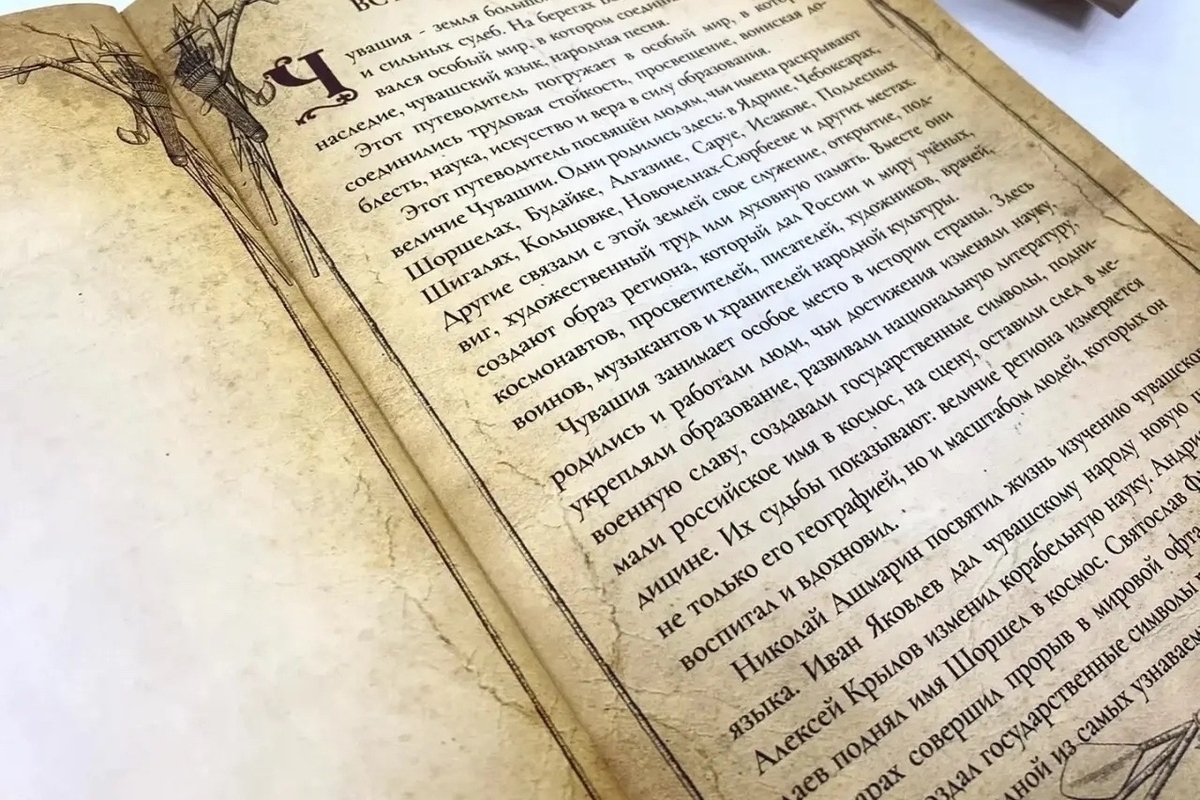 ВСТ
Чувашия - земля большой
и сильных судеб. На берегах
вался особый мир, в котором соедини
наследие, чувашский язык, народная песня.
Этот путеводитель погружает в особый мир, в кото
соединились трудовая стойкость, просвещение, воинская до-
блесть, наука, искусство и вера в силу образования.
Этот путеводитель посвящён людям, чьи имена раскрывают
величие Чувашии. Одни родились здесь: в Ядрине, Чебоксарах,
Шоршелах, Будайке, Алгазине, Саруе, Исакове, Подлесных
Шигалях, Кольцовке, Новочелнах-Сюрбееве и других местах.
Другие связали с этой землей свое служение, открытие, под-
виг, художественный труд или духовную память. Вместе они
создают образ региона, который дал России и миру учёных,
космонавтов, просветителей, писателей, художников, врачей,
воинов, музыкантов и хранителей народной культуры.
Чувашия занимает особое место в истории страны. Здесь
родились и работали люди, чьи достижения изменяли науку,
укрепляли образование, развивали национальную литературу,
военную славу, создавали государственные символы, подни-
мали российское имя в космос, на сцену, оставили след в ме-
дицине. Их судьбы показывают: величие региона измеряется
не только его географией, но и масштабом людей, которых он
воспитал и вдохновил.
Николай Ашмарин посвятил жизнь изучению чувашско
языка. Иван Яковлев дал чувашскому народу новую
Алексей Крылов изменил корабельную науку. Андри
лаев поднял имя Шоршел в космос. Святослав Ф
арах совершил прорыв в мировой офта
оздал государственные символы
дной из самых узнаваем